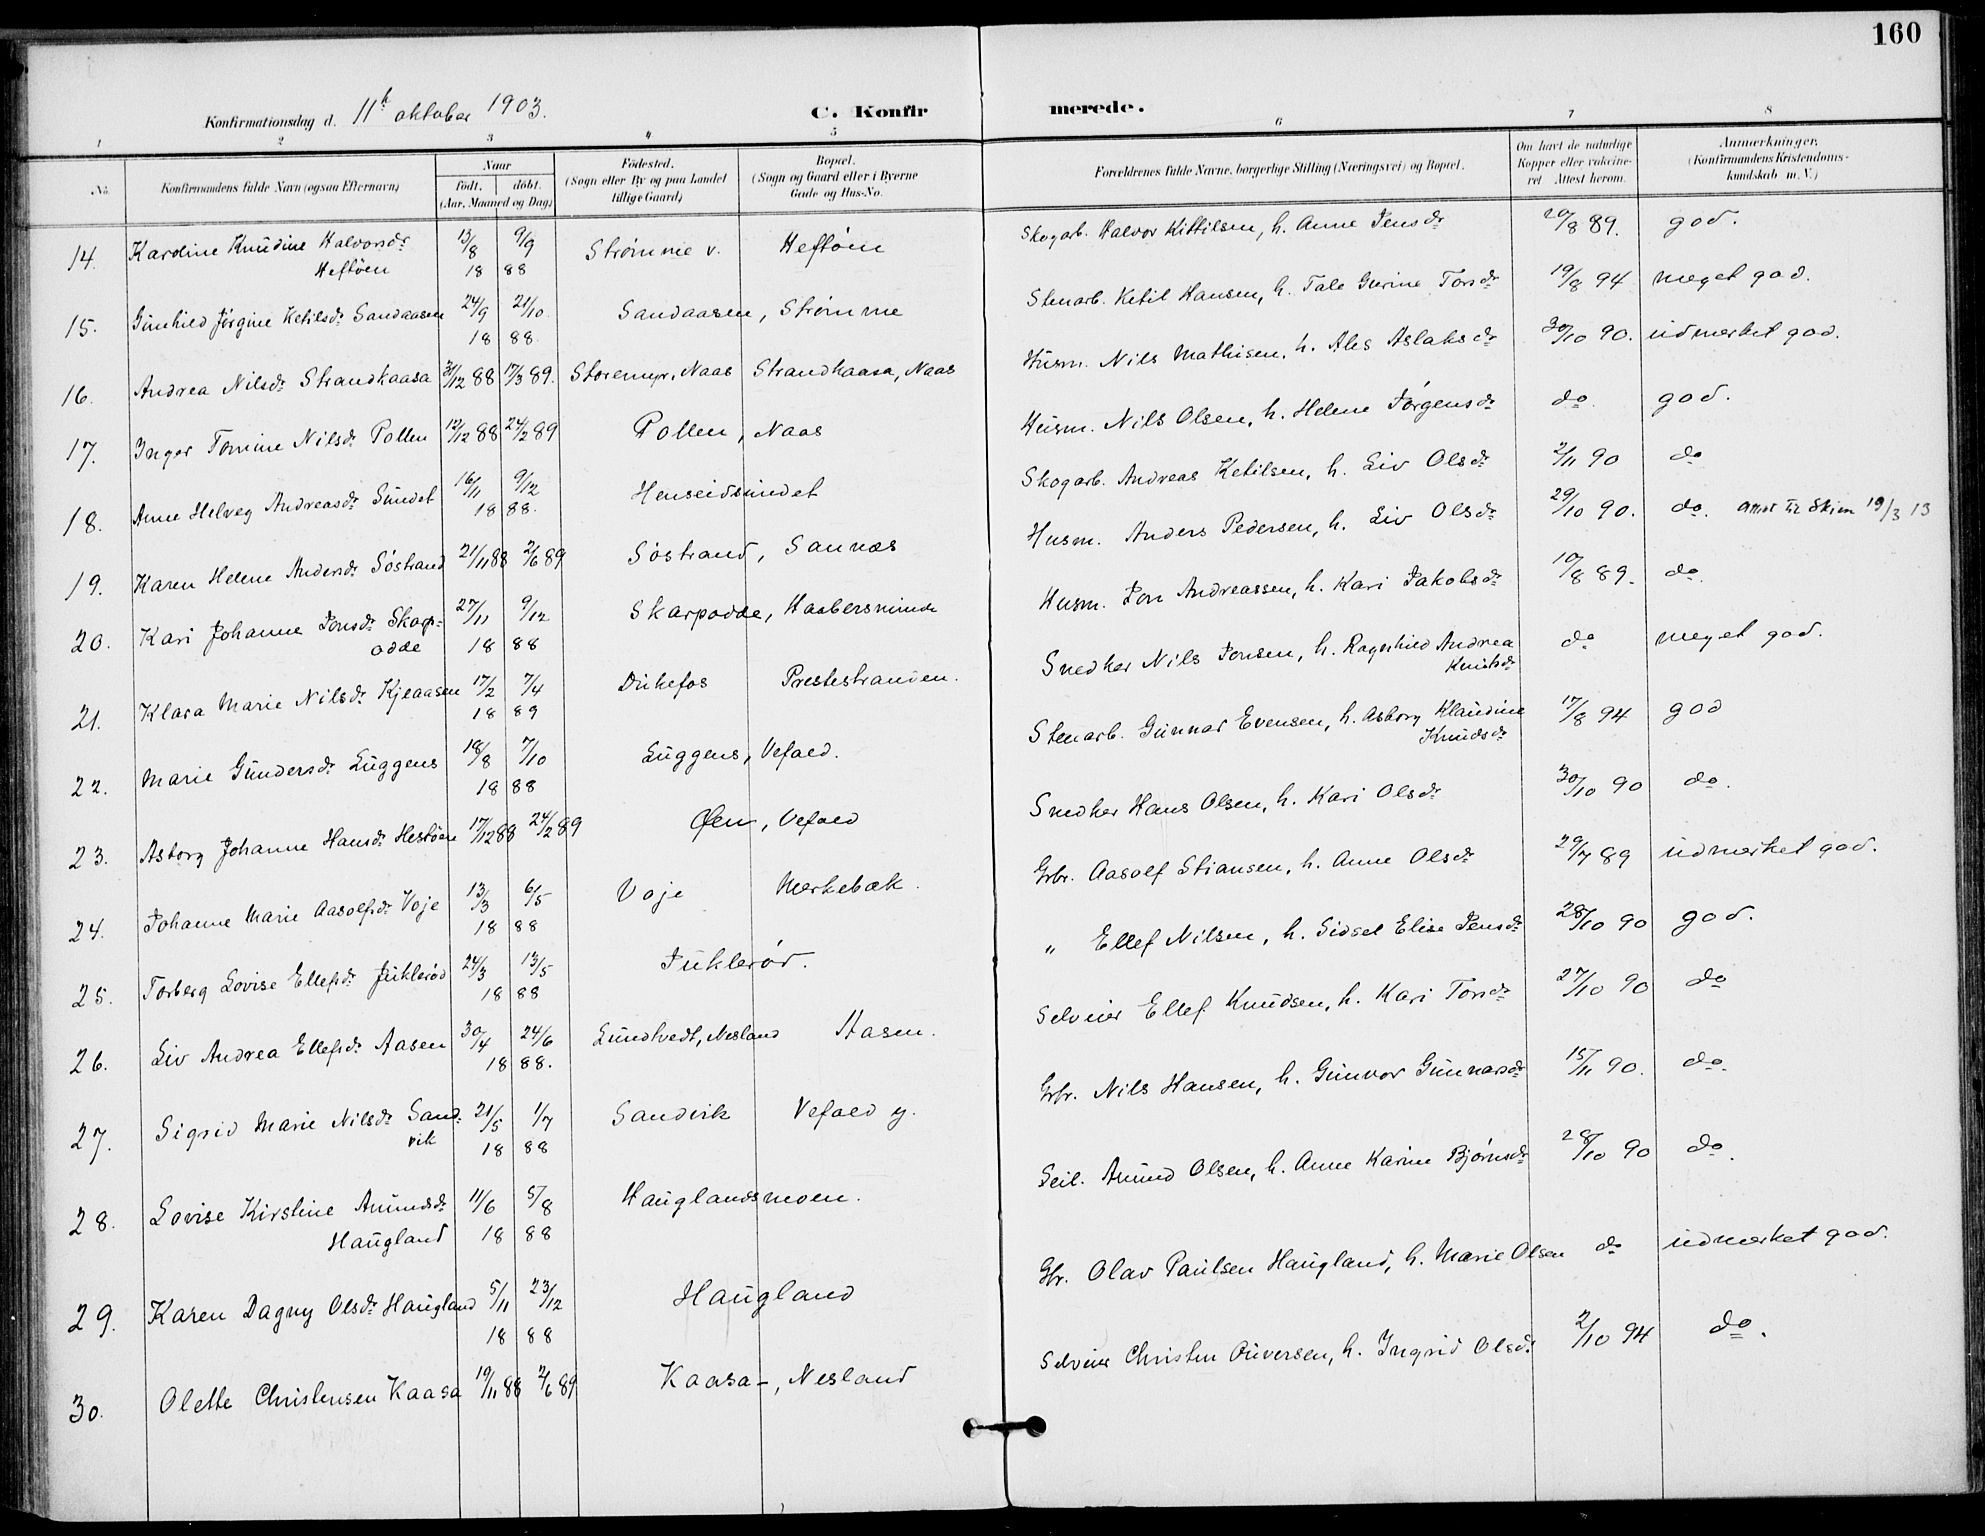 160
Konfirmationsdag d. 11h oktober 1903.
C. Konfirmerede.
1 2 3 4 5 6 7 8
No. Konfirmandens fulde Navn (ogsaa Efternavn) Naar født. døbt. (Aar, Maaned og Dag) Fødested. (Sogn eller By og paa Landet tillige Gaard) Bopæl. (Sogn og Gaard eller i Byerne Gade og Hus-No. Forældrenes fulde Navne, borgerlige Stilling (Næringsvei) og Bopæl. Om havt de naturlige Kopper eller vakcineret Attest herom. Anmærkninger. (Konfirmandens Kristendomskundskab m. V.)
14. Karoline Knudine Halvorsdr 13/8 9/9 Strømme v. Heftöen Skogarb. Halvor Kittilsen, h. Anne Jensdr 20/8 89. god.
Heftöen 18 88
15. Gunhild Jørgine Ketilsdr Sandaasen 24/9 21/10 Sandaasen, Strømme Stenarb. Ketil Hansen, h. Tale Gurine Torsdr 19/8 94 meget god.
18 88.
16. Andrea Nilsdr Strandkaasa 31/12 88 17/3 89. Storemyr, Naas Strandkaasa, Naas Husm. Nils Mathisen, h. Ales Aslaksdr 30/10 90. udmerket god.
17. Inger Tomine Nilsdr Pollen 12/12 88 24/2 89 Pollen, Naas Husm. Nils Olsen, h. Helene Jörgensdr do. god.
18. Anne Helveg Andreasdr Sundet 16/11 9/12 Henseidsundet Skogarb. Andreas Ketilsen, h. Liv Olsdr 2/11 90 do
18 88.
19. Karen Helene Andersdr Söstrand 21/11 88 2/6 89 Söstrand, Sannes Husm. Anders Pedersen, h. Liv Olsdr 29/10 90. do. attest til Skien 19/3 13
20. Kari Johanne Jonsdr Skarp- 27/11 9/12 Skarpodde, Haabersminde Husm. Jon Andreassen, h. Kari Jakobsdr 10/8 89. do.
odde 18 88
21. Klara Marie Nilsdr Kjeaasen 17/2 7/4 Dukefos Prestestranden. Snedker Nils Jonsen, h. Ragnhild Andrea do meget god.
18 89 Knutsdr
22. Marie Gundersdr Luggens 18/8 7/10 Luggens, Vefald. Stenarb. Gunnar Evensen, h. Asborg Klaudine 17/8 94 god
18 88 Knudsdr
23. Asborg Johanne Hansdr Hestöen 17/12 88 24/2 89 Øen, Vefald Snedker Hans Olsen, h. Kari Olsdr 30/10 90 do.
24. Johanne Marie Aasolfsdr Voje 13/3 6/5 Voje Merkebæk. Grbr. Aasolf Stiansen, h. Anne Olsdr 29/7 89 udmerket god.
18 88
25. Torberg Lovise Ellefsdr Jukleröd 24/3 13/5 Jukleröd. " Ellef Nilsen, h. Sidsel Elise Jensdr 28/10 90 god.
18 88
26. Liv Andrea Ellefsdr Aasen 30/4 24/6 Lundtvedt, Nesland Aasen. Selveier Ellef Knudsen, h. Kari Torsdr 27/10 90 do
18 88.
27. Sigrid Marie Nilsdr Sand- 21/5 1/7 Sandvik Vefald y. Grbr. Nils Hansen, h. Gunvor Gunnarsdr 15/11 90. do.
vik 18 88
28. Lovise Kirstine Amundsdr 11/6 5/8 Hauglandsmoen. Seil. Amund Olsen, h. Anne Karine Bjørnsdr 28/10 90 do.
Haugland 18 88
29. Karen Dagny Olsdr Haugland 5/11 23/12 Haugland Gbr. Olav Paulsen Haugland, h. Marie Olsen do udmerket god.
18 88
30. Olette Christensen Kaasa 19/11 88 2/6 89 Kaasa-, Nesland Selveier Christen Ouversen, h. Ingrid Olsdr 2/10 94 do.